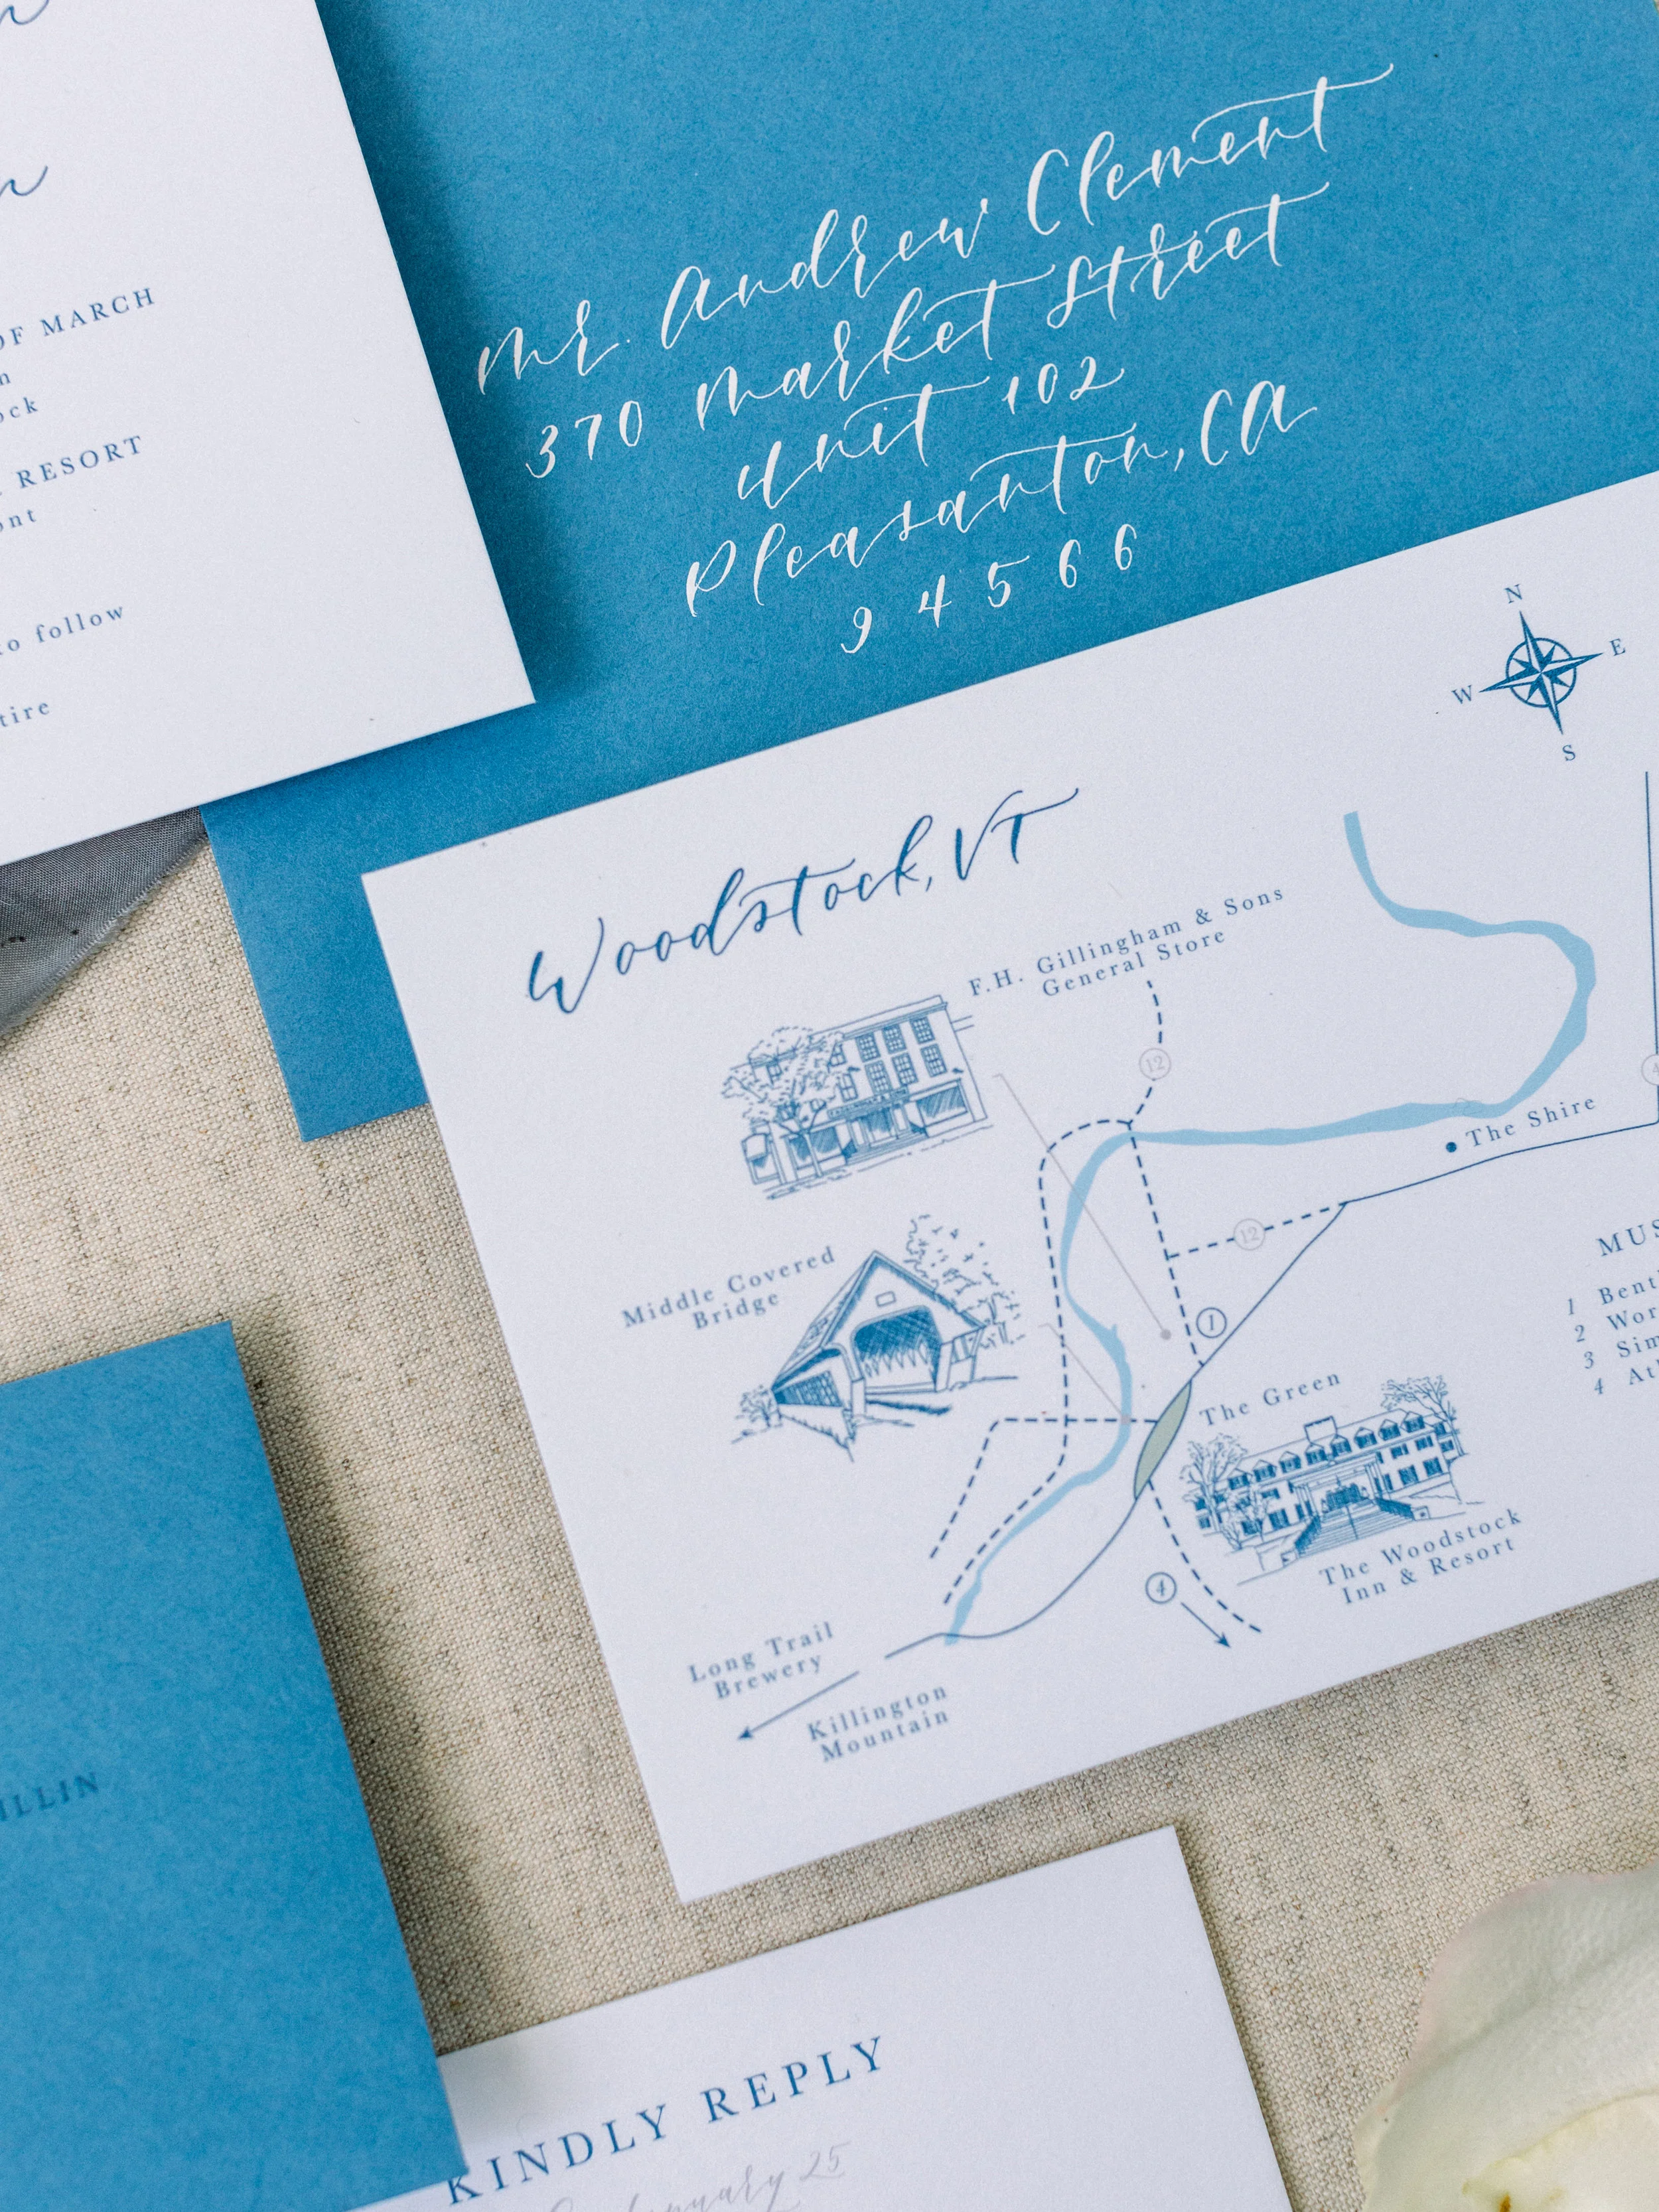 OF MARCH
RESORT
to follow
Mr. Andrew Clement
370 Market Street
Unit 102
Pleasanton, CA
94566
N
E
W
S
Woodstock, VT
F.H. Gillingham & Sons
General Store
12
The Shire
12
Middle Covered
Bridge
1
The Green
The Woodstock
Inn & Resort
4
Long Trail
Brewery
Killington
Mountain
4
1
2
3
4
KINDLY REPLY
January 25